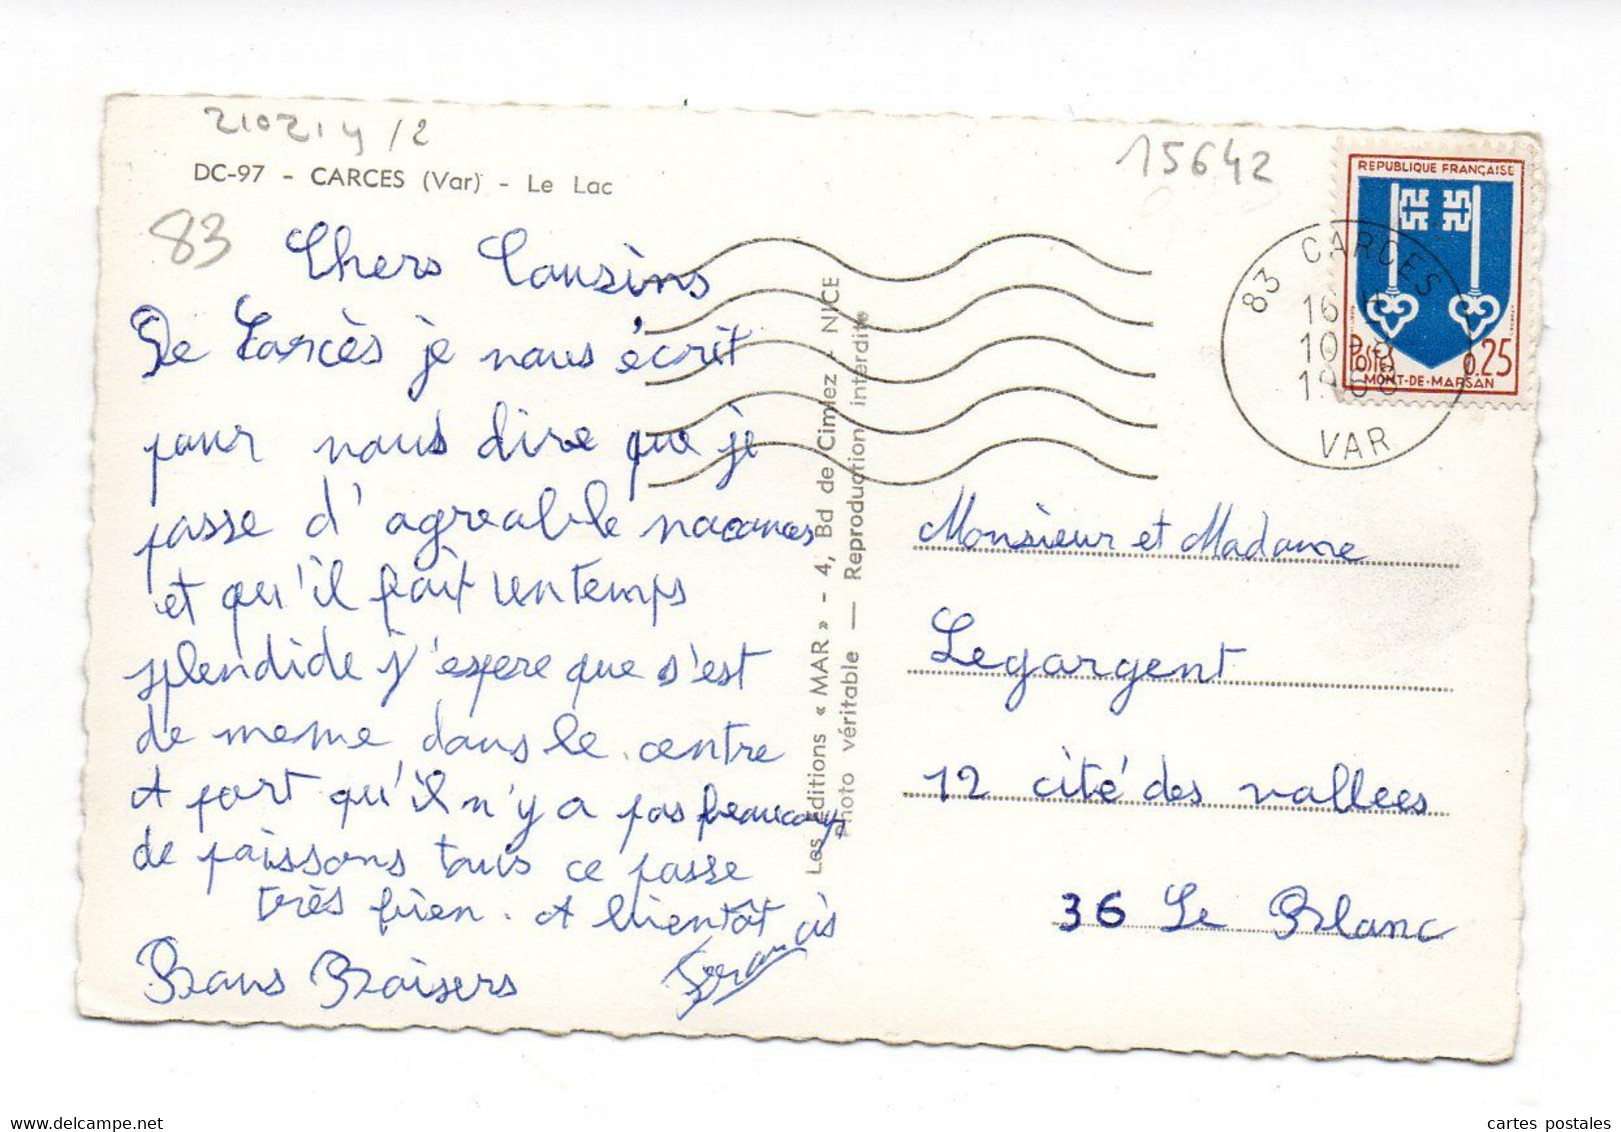 210214/2
DC-97 - CARCES (Var) - Le Lac
83
Chers Cousins
De Carcès je vous écrit
pour vous dire que je
passe d'agreable vacances
et qu'il fait untemps
splendide j'espere que s'est
de meme dans le centre
A part qu'il n'y a pas beaucoup
de poissons tous ce passe
très bien. A bientôt
Bons Baisers
Francis
Les Editions « MAR » - 4, Bd de Cimiez - NICE
Photo véritable — Reproduction interdite
15642
REPUBLIQUE FRANÇAISE
POSTES 0,25
MONT-DE-MARSAN
83 CARCES
16 H
10-8
1968
VAR
Monsieur et Madame
Legargent
12 cité des vallees
36 Le Blanc
cartes postales